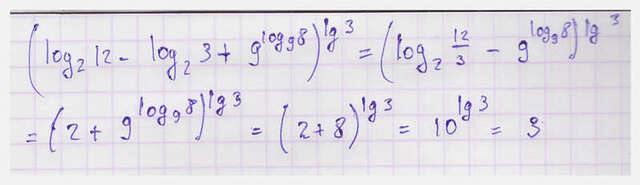 (log₂ 12 - log₂ 3 + 9^(log₉ 8))^(lg 3) = (log₂ 12/3 - 9^(log₉ 8))^(lg 3)
= (2 + 9^(log₉ 8))^(lg 3) = (2 + 8)^(lg 3) = 10^(lg 3) = 3